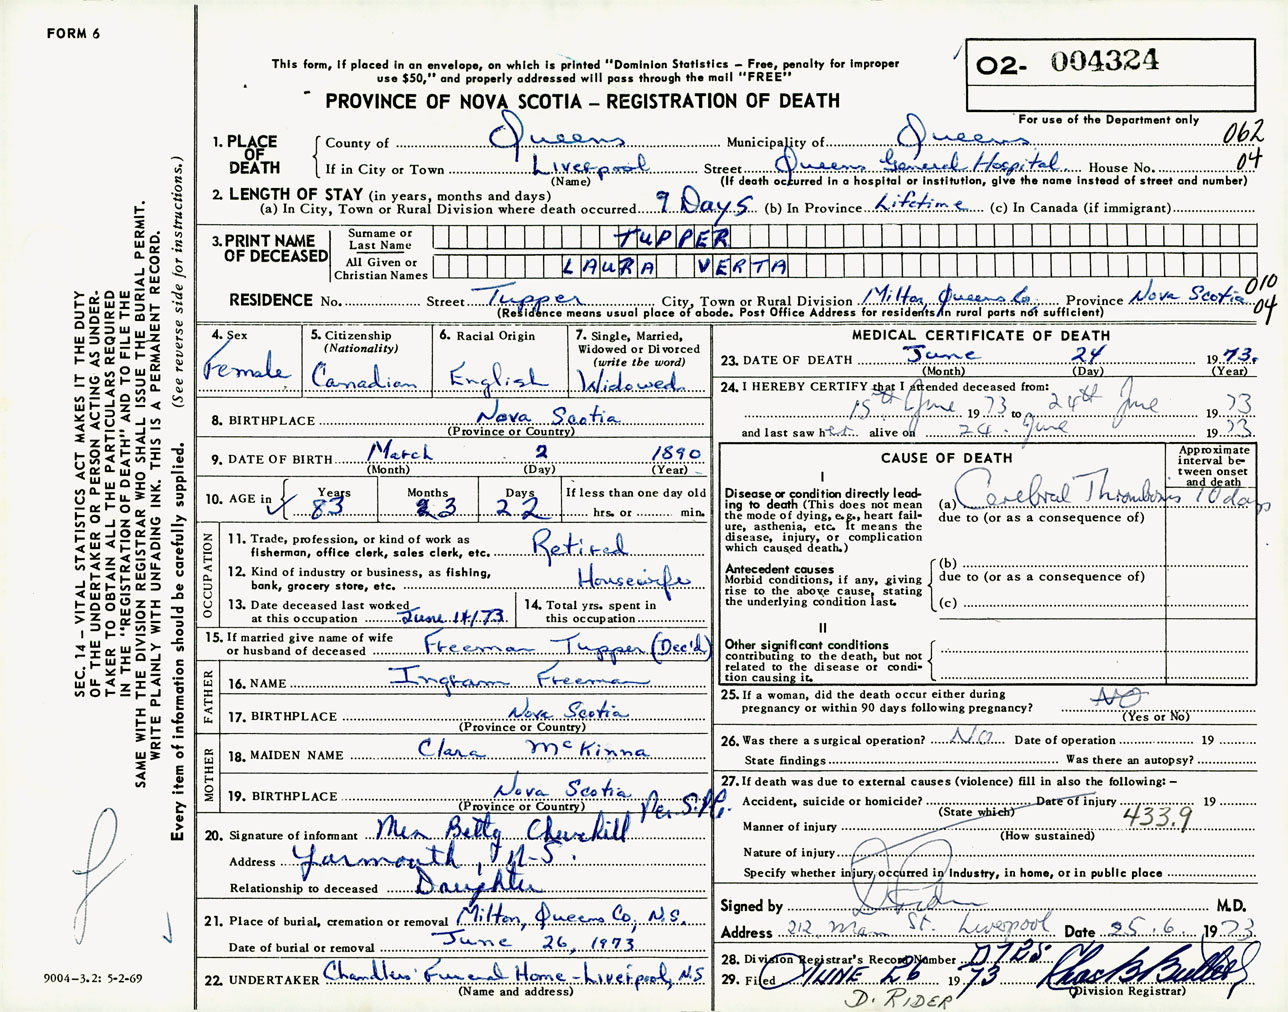 FORM 6
This form, if placed in an envelope, on which is printed "Dominion Statistics – Free, penalty for improper
use $50," and properly addressed will pass through the mail "FREE"
O2- 004324
PROVINCE OF NOVA SCOTIA – REGISTRATION OF DEATH
For use of the Department only
062
04
1. PLACE OF DEATH
County of Queens Municipality of Queens
If in City or Town Liverpool Street Queens General Hospital House No.
(Name) (If death occurred in a hospital or institution, give the name instead of street and number)
2. LENGTH OF STAY (in years, months and days)
(a) In City, Town or Rural Division where death occurred 9 Days (b) In Province Lifetime (c) In Canada (if immigrant)
3. PRINT NAME OF DECEASED
Surname or Last Name TUPPER
All Given or Christian Names LAURA VERTA
RESIDENCE No. Street Tupper City, Town or Rural Division Milton, Queens Co. Province Nova Scotia
010
04
(Residence means usual place of abode. Post Office Address for residents in rural parts not sufficient)
4. Sex
Female
5. Citizenship
(Nationality)
Canadian
6. Racial Origin
English
7. Single, Married,
Widowed or Divorced
(write the word)
Widowed
8. BIRTHPLACE Nova Scotia
(Province or Country)
9. DATE OF BIRTH March 2 1890
(Month) (Day) (Year)
10. AGE in
Years Months Days If less than one day old
83 3 22 hrs. or min.
OCCUPATION
11. Trade, profession, or kind of work as
fisherman, office clerk, sales clerk, etc. Retired
12. Kind of industry or business, as fishing,
bank, grocery store, etc. Housewife
13. Date deceased last worked
at this occupation June 14/73
14. Total yrs. spent in
this occupation
15. If married give name of wife
or husband of deceased Freeman Tupper (Dec'd)
FATHER
16. NAME Ingram Freeman
17. BIRTHPLACE Nova Scotia
(Province or Country)
MOTHER
18. MAIDEN NAME Clara McKinna
19. BIRTHPLACE Nova Scotia
(Province or Country)
20. Signature of informant Mrs Betty Churchill
Address Yarmouth, N.S.
Relationship to deceased Daughter
21. Place of burial, cremation or removal Milton, Queens Co, N.S.
Date of burial or removal June 26, 1973
22. UNDERTAKER Chandlers' Funeral Home - Liverpool, N.S
(Name and address)
MEDICAL CERTIFICATE OF DEATH
23. DATE OF DEATH June 24 1973.
(Month) (Day) (Year)
24. I HEREBY CERTIFY that I attended deceased from:
15th June 1973 to 24th June 1973
and last saw her alive on 24. June 1973.
CAUSE OF DEATH
Approximate
interval be-
tween onset
and death
I
Disease or condition directly lead-
ing to death (This does not mean
the mode of dying, e.g., heart fail-
ure, asthenia, etc. It means the
disease, injury, or complication
which caused death.)
(a) Cerebral Thrombosis 10 days
due to (or as a consequence of)
Antecedent causes
Morbid conditions, if any, giving
rise to the above cause, stating
the underlying condition last.
(b)
due to (or as a consequence of)
(c)
II
Other significant conditions
contributing to the death, but not
related to the disease or condi-
tion causing it.
25. If a woman, did the death occur either during
pregnancy or within 90 days following pregnancy? NO
(Yes or No)
26. Was there a surgical operation? NO Date of operation 19
State findings Was there an autopsy?
27. If death was due to external causes (violence) fill in also the following: –
Accident, suicide or homicide? Date of injury 19
(State which)
Manner of injury 433.9
(How sustained)
Nature of injury
Specify whether injury occurred in industry, in home, or in public place
Signed by M.D.
Address 212 Main St. Liverpool Date 25.6. 1973
28. Division Registrar's Record Number 0725
29. Filed JUNE 26 1973
(Division Registrar)
D. RIDER
SEC. 14 – VITAL STATISTICS ACT MAKES IT THE DUTY
OF THE UNDERTAKER OR PERSON ACTING AS UNDER-
TAKER TO OBTAIN ALL THE PARTICULARS REQUIRED
IN THE "REGISTRATION OF DEATH" AND TO FILE THE
SAME WITH THE DIVISION REGISTRAR WHO SHALL ISSUE THE BURIAL PERMIT.
WRITE PLAINLY WITH UNFADING INK. THIS IS A PERMANENT RECORD.
Every item of information should be carefully supplied. (See reverse side for instructions.)
9004–3.2: 5-2-69